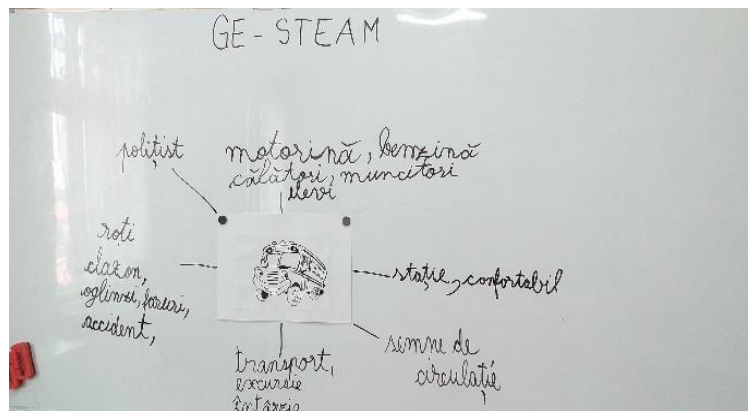 GE-STEAM
polițist
motorină, benzină
călători, muncitori
elevi
roți
claxon,
oglinzi, faruri,
accident,
stație, confortabil
semne de
circulație
transport,
excursie